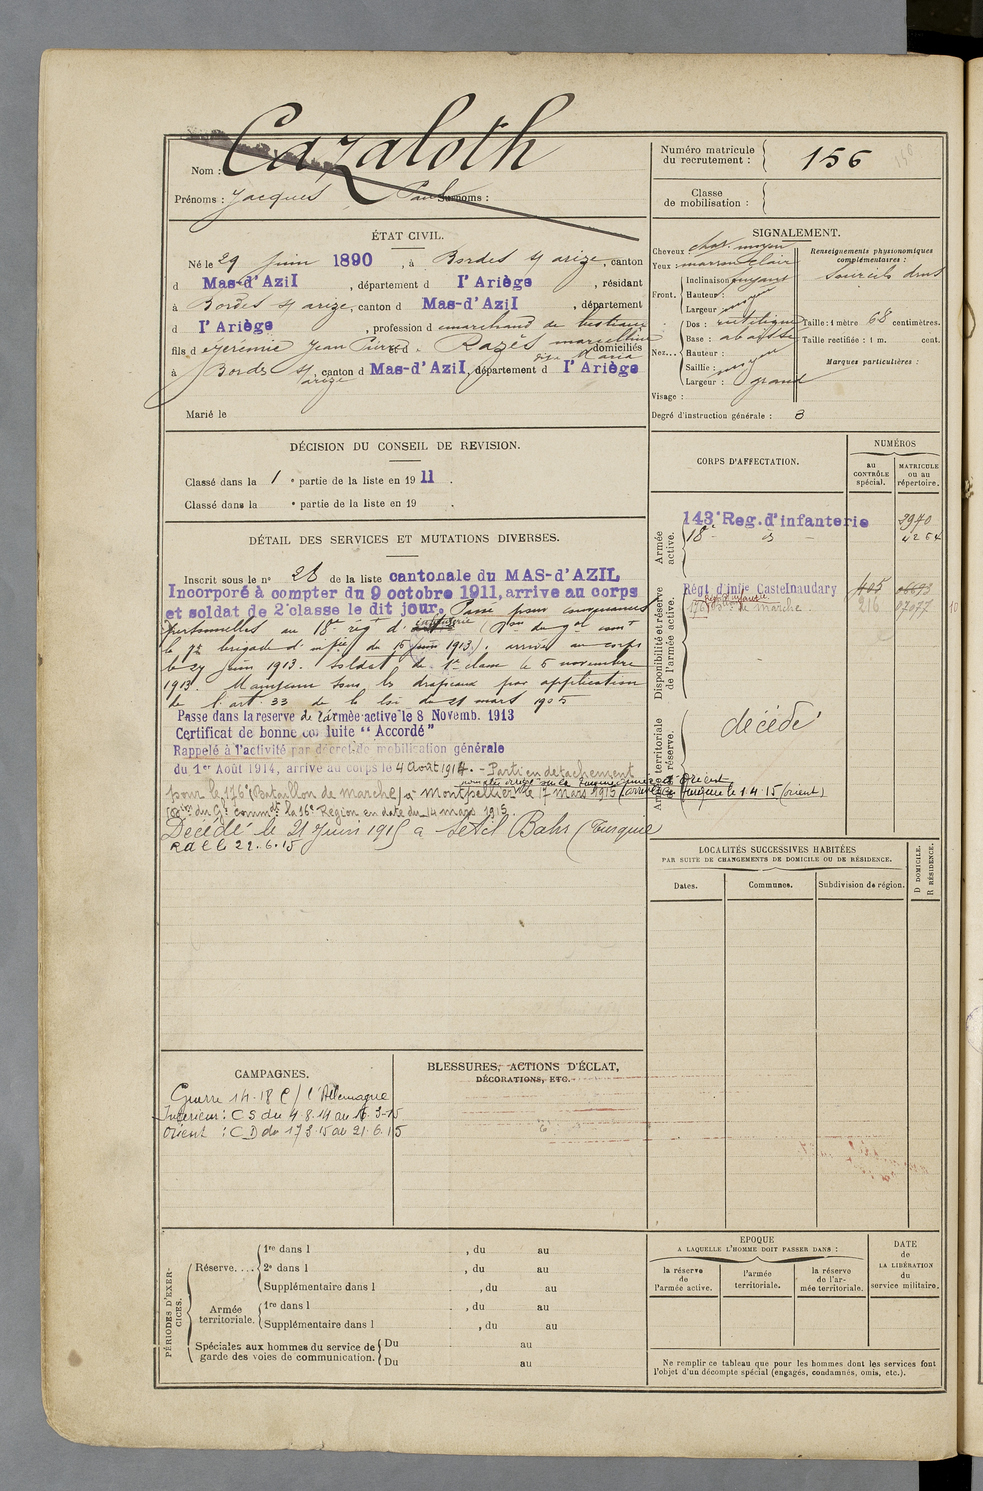 Nom : Cazaloth
Prénoms : Jacques Paul Surnoms :
ÉTAT CIVIL.
Né le 29 Juin 1890, à Bordes s/ arize, canton
d Mas-d'Azil, département d l'Ariège, résidant
à Bordes s/ arize, canton d Mas-d'Azil, département
d l'Ariège, profession d marchand de bestiaux
fils d Jérémie Jean Pierre et d Razès marcelline
dite Maria domiciliés
à Bordes s/ arize, canton d Mas-d'Azil, département d l'Ariège
Marié le
DÉCISION DU CONSEIL DE REVISION.
Classé dans la 1e partie de la liste en 1911.
Classé dans la e partie de la liste en 19 .
DÉTAIL DES SERVICES ET MUTATIONS DIVERSES.
Inscrit sous le no 28 de la liste cantonale du MAS-d'AZIL
Incorporé à compter du 9 octobre 1911, arrive au corps
et soldat de 2e classe le dit jour. Passé pour convenances
personnelles au 18e régt d' infanterie (Don du gal comt
la brigade d' infie du 15 juin 1913), arrivé au corps
le 27 juin 1913. Soldat de 1e classe le 5 novembre
1913. Maintenu sous les drapeaux par application
de l'art. 33 de la loi du 21 mars 1905
Passé dans la reserve de l'armée active le 8 Novemb. 1913
Certificat de bonne conduite "Accordé"
Rappelé à l'activité par décret de mobilisation générale
du 1er Août 1914, arrivé au corps le 4 août 1914. - Parti en détachement
pour le 176e (Bataillon de marche) à Montpellier le 17 mars 1915 (arrivé en Turquie le 1.4.15 (orient)
(Don du Gl Commdt la 16e Région en date du 14 mars 1915.
Décédé le 21 Juin 1915 à Setil Bahr (Turquie
22.6.15
CAMPAGNES.
Guerre 14-18 C/ l'Allemagne
Intérieur : CS du 4.8.14 au 16.3.15
Orient : CD du 17.3.15 au 21.6.15
BLESSURES, ACTIONS D'ÉCLAT,
DÉCORATIONS, ETC.
PÉRIODES D'EXERCICES.
Réserve....
1re dans l , du au
2e dans l , du au
Supplémentaire dans l , du au
Armée territoriale.
1re dans l , du au
Supplémentaire dans l , du au
Spéciales aux hommes du service de garde des voies de communication.
Du au
Du au
Numéro matricule du recrutement : 156
Classe de mobilisation :
SIGNALEMENT.
Cheveux chat. moyen
Yeux marron clair
Front. Inclinaison fuyant
Hauteur :
Largeur moyen
Nez... Dos : rectiligne
Base : abaissée
Hauteur :
Saillie : moyen
Largeur : grand
Visage :
Renseignements physionomiques complémentaires :
sourcils drus
Taille : 1 mètre 68 centimètres.
Taille rectifiée : 1 m. cent.
Marques particulières :
Degré d'instruction générale : 3
CORPS D'AFFECTATION.
NUMÉROS
au CONTRÔLE spécial.
MATRICULE ou au répertoire.
Armée active.
143e Reg. d'infanterie 3970
18e 4264
Disponibilité et réserve de l'armée active.
Régt d'infie Castelnaudary 405 06693
176e de marche. 216 07077
Armée territoriale et réserve.
décédé
LOCALITÉS SUCCESSIVES HABITÉES
PAR SUITE DE CHANGEMENTS DE DOMICILE OU DE RÉSIDENCE.
Dates.
Communes.
Subdivision de région.
D DOMICILE.
R RÉSIDENCE.
EPOQUE
A LAQUELLE L'HOMME DOIT PASSER DANS :
la réserve de l'armée active.
l'armée territoriale.
la réserve de l'armée territoriale.
DATE de LA LIBÉRATION du service militaire.
Ne remplir ce tableau que pour les hommes dont les services font
l'objet d'un décompte spécial (engagés, condamnés, omis, etc.).